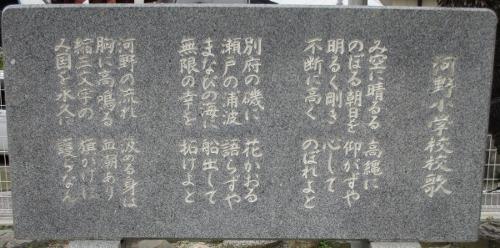 河野小学校校歌
み空に晴るる 高縄に
のぼる朝日を 仰がずや
明るく剛き 心して
不断に高く のばれよと
別府の磯に 花かおる
瀬戸の浦波 語らずや
まなびの海に 船出して
無限の幸を 拓けよと
河野の流れ 汲める身は
胸に高鳴る 血潮あり
縮三文字の 旗かげに
み国を永久に 護らなん